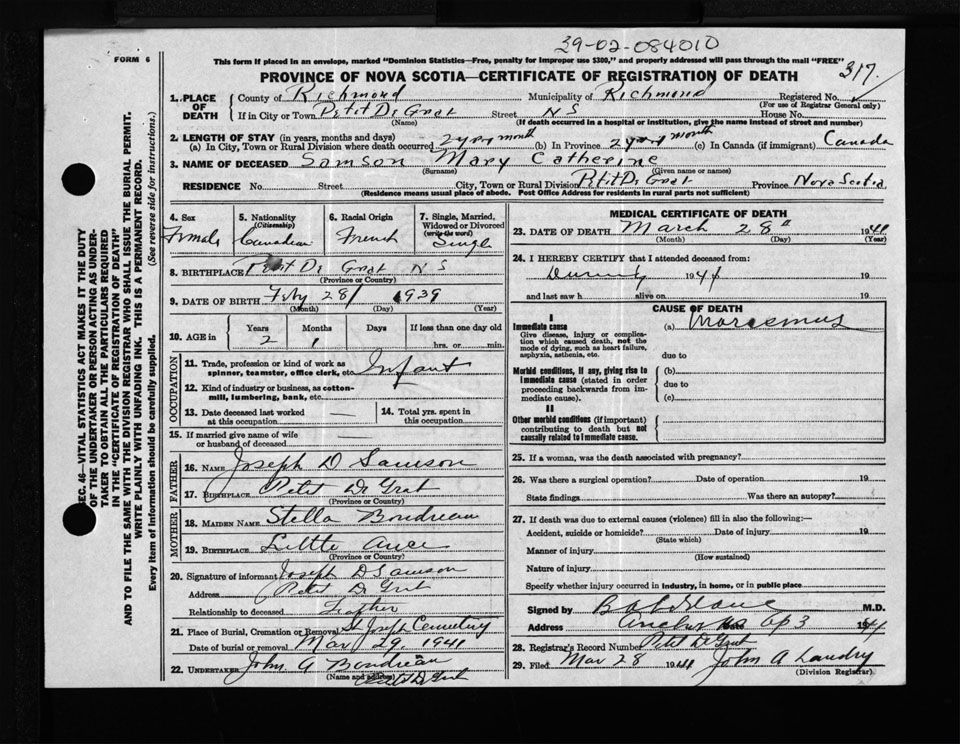 39-02-084010
FORM 6
This form if placed in an envelope, marked "Dominion Statistics—Free, penalty for improper use $300," and properly addressed will pass through the mail "FREE"
PROVINCE OF NOVA SCOTIA—CERTIFICATE OF REGISTRATION OF DEATH
317
1. PLACE OF DEATH
County of Richmond Municipality of Richmond Registered No.
(For use of Registrar General only)
If in City or Town Petit De Grat Street N S House No.
(Name) (If death occurred in a hospital or institution, give the name instead of street and number)
2. LENGTH OF STAY (in years, months and days)
(a) In City, Town or Rural Division where death occurred 2 yrs month (b) In Province 2 years month (c) In Canada (if immigrant) Canada
3. NAME OF DECEASED Samson Mary Catherine
(Surname) (Given name or names)
RESIDENCE No. Street City, Town or Rural Division Petit De Grat Province Nova Scotia
(Residence means usual place of abode. Post Office Address for residents in rural parts not sufficient)
SEC. 46—VITAL STATISTICS ACT MAKES IT THE DUTY
OF THE UNDERTAKER OR PERSON ACTING AS UNDER-
TAKER TO OBTAIN ALL THE PARTICULARS REQUIRED
IN THE "CERTIFICATE OF REGISTRATION OF DEATH"
AND TO FILE THE SAME WITH THE DIVISION REGISTRAR WHO SHALL ISSUE THE BURIAL PERMIT.
WRITE PLAINLY WITH UNFADING INK. THIS IS A PERMANENT RECORD.
Every item of information should be carefully supplied. (See reverse side for instructions.)
4. Sex 5. Nationality (Citizenship) 6. Racial Origin 7. Single, Married, Widowed or Divorced (write the word)
Female Canadian French Single
8. BIRTHPLACE Petit De Grat N S
(Province or Country)
9. DATE OF BIRTH Feby 28 1939
(Month) (Day) (Year)
10. AGE in Years Months Days If less than one day old
2 1 hrs. or min.
OCCUPATION
11. Trade, profession or kind of work as
spinner, teamster, office clerk, etc. Infant
12. Kind of industry or business, as cotton-
mill, lumbering, bank, etc.
13. Date deceased last worked at this occupation
14. Total yrs. spent in this occupation
15. If married give name of wife
or husband of deceased
FATHER
16. NAME Joseph D Samson
17. BIRTHPLACE Petit De Grat
(Province or Country)
MOTHER
18. MAIDEN NAME Stella Boudreau
19. BIRTHPLACE Little Ance
(Province or Country)
20. Signature of informant Joseph D Samson
Address Petit De Grat
Relationship to deceased Father
21. Place of Burial, Cremation or Removal St Joseph Cemetery
Date of burial or removal Mar 29 1941
22. UNDERTAKER John A Boudreau
(Name and address) Petit De Grat
MEDICAL CERTIFICATE OF DEATH
23. DATE OF DEATH March 28th 1941
(Month) (Day) (Year)
24. I HEREBY CERTIFY that I attended deceased from:
During 1941 19
and last saw h alive on 19
CAUSE OF DEATH
I
Immediate cause (a) Marasmus
Give disease, injury or complica-
tion which caused death, not the
mode of dying, such as heart failure,
asphyxia, asthenia, etc. due to
Morbid conditions, if any, giving rise to (b)
immediate cause (stated in order due to
proceeding backwards from im-
mediate cause). (c)
II
Other morbid conditions (if important)
contributing to death but not
causally related to immediate cause.
25. If a woman, was the death associated with pregnancy?
26. Was there a surgical operation? Date of operation 19
State findings Was there an autopsy?
27. If death was due to external causes (violence) fill in also the following:—
Accident, suicide or homicide? Date of injury 19
(State which)
Manner of injury
(How sustained)
Nature of injury
Specify whether injury occurred in industry, in home, or in public place
Signed by M.D.
Address Date Ap 3 1941
28. Registrar's Record Number Petit De Grat
29. Filed Mar 28 1941 John A Landry
(Division Registrar)